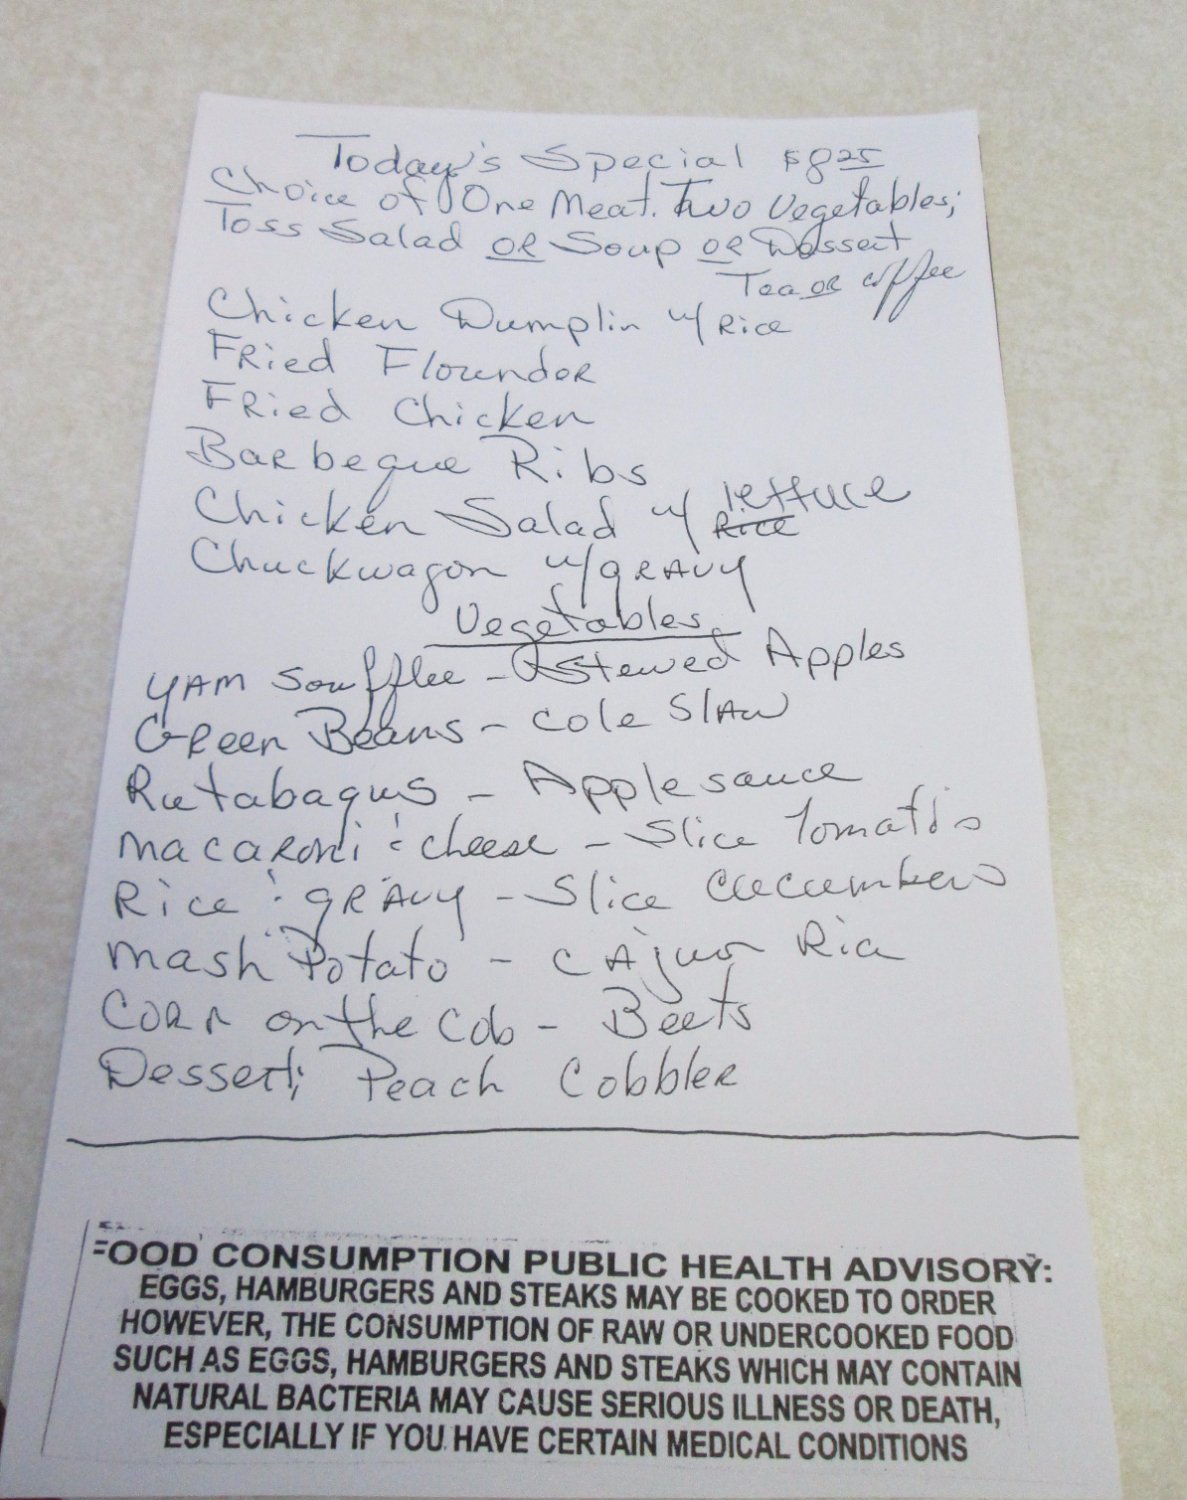 Today's Special $8 25
Choice of One Meat. Two Vegetables;
Toss Salad OR Soup OR Dessert
Tea OR coffee
Chicken Dumplin w/ Rice
FRied FloundeR
FRied Chicken
BaRbeque Ribs
Chicken Salad w/ Rice lettuce
Chuckwagon w/ gRAVY
Vegetables
YAM Soufflee - Stewed Apples
GReen Beans - Cole SlAw
Rutabagus - Applesauce
MacaRoni & cheese - Slice Tomatos
Rice & gRAVY - Slice Cucumbers
Mash Potato - CAjun Rice
CoRn on the Cob - Beets
Dessert; Peach CobbleR
FOOD CONSUMPTION PUBLIC HEALTH ADVISORY:
EGGS, HAMBURGERS AND STEAKS MAY BE COOKED TO ORDER
HOWEVER, THE CONSUMPTION OF RAW OR UNDERCOOKED FOOD
SUCH AS EGGS, HAMBURGERS AND STEAKS WHICH MAY CONTAIN
NATURAL BACTERIA MAY CAUSE SERIOUS ILLNESS OR DEATH,
ESPECIALLY IF YOU HAVE CERTAIN MEDICAL CONDITIONS